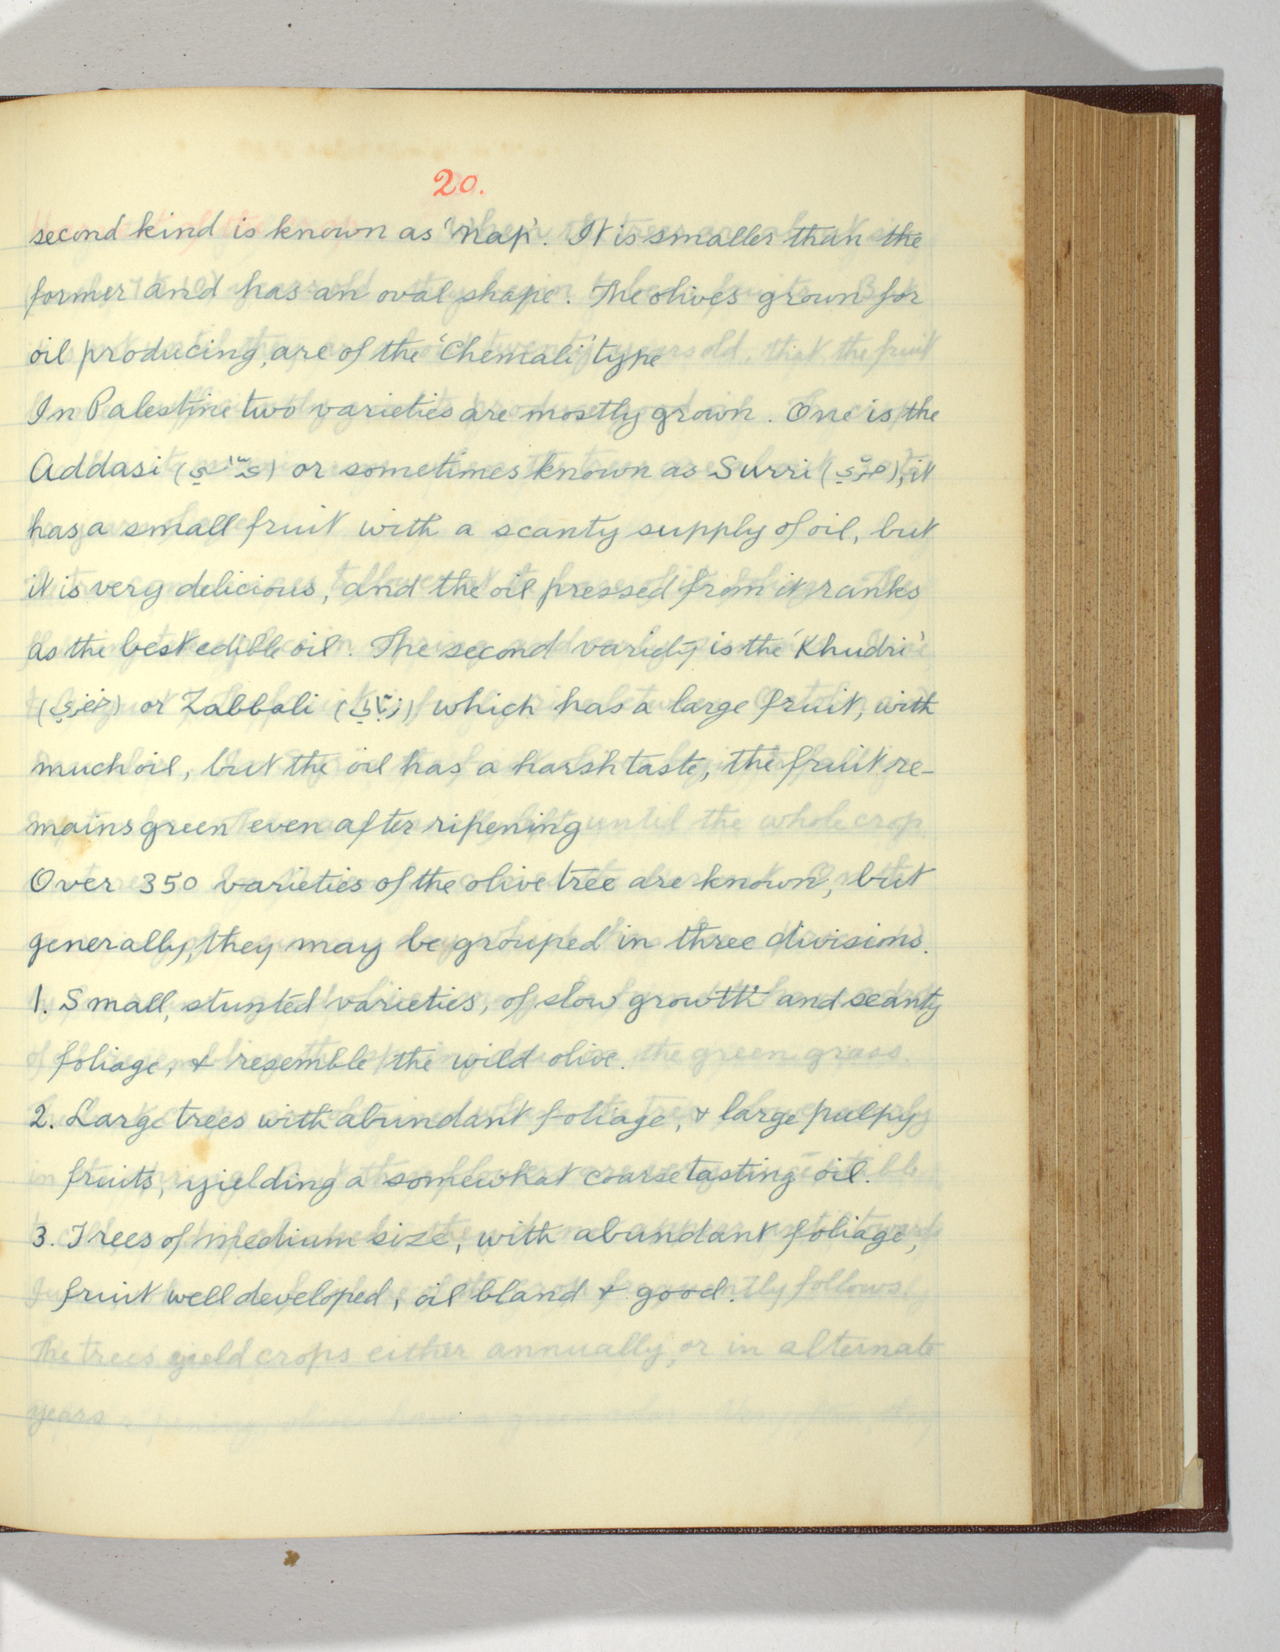 20.
second kind is known as 'Nap'. It is smaller than the
former and has an oval shape. The olives grown for
oil producing, are of the 'Chemali' type
In Palestine two varieties are mostly grown. One is the
Addasi (عدّاسي) or sometimes known as Surri (صرّي), it
has a small fruit with a scanty supply of oil, but
it is very delicious, and the oil pressed from it ranks
as the best edible oil. The second variety is the 'Khudri'
(خضري) or Zabbali (زبّالي) which has a large fruit, with
much oil, but the oil has a harsh taste, the fruit re-
mains green even after ripening
Over 350 varieties of the olive tree are known, but
generally, they may be grouped in three divisions.
1. Small, stunted varieties, of slow growth and scanty
foliage, & resemble the wild olive.
2. Large trees with abundant foliage, & large pulpy
fruits, yielding a somewhat coarse tasting oil.
3. Trees of medium size, with abundant foliage,
fruit well developed, oil bland & good.